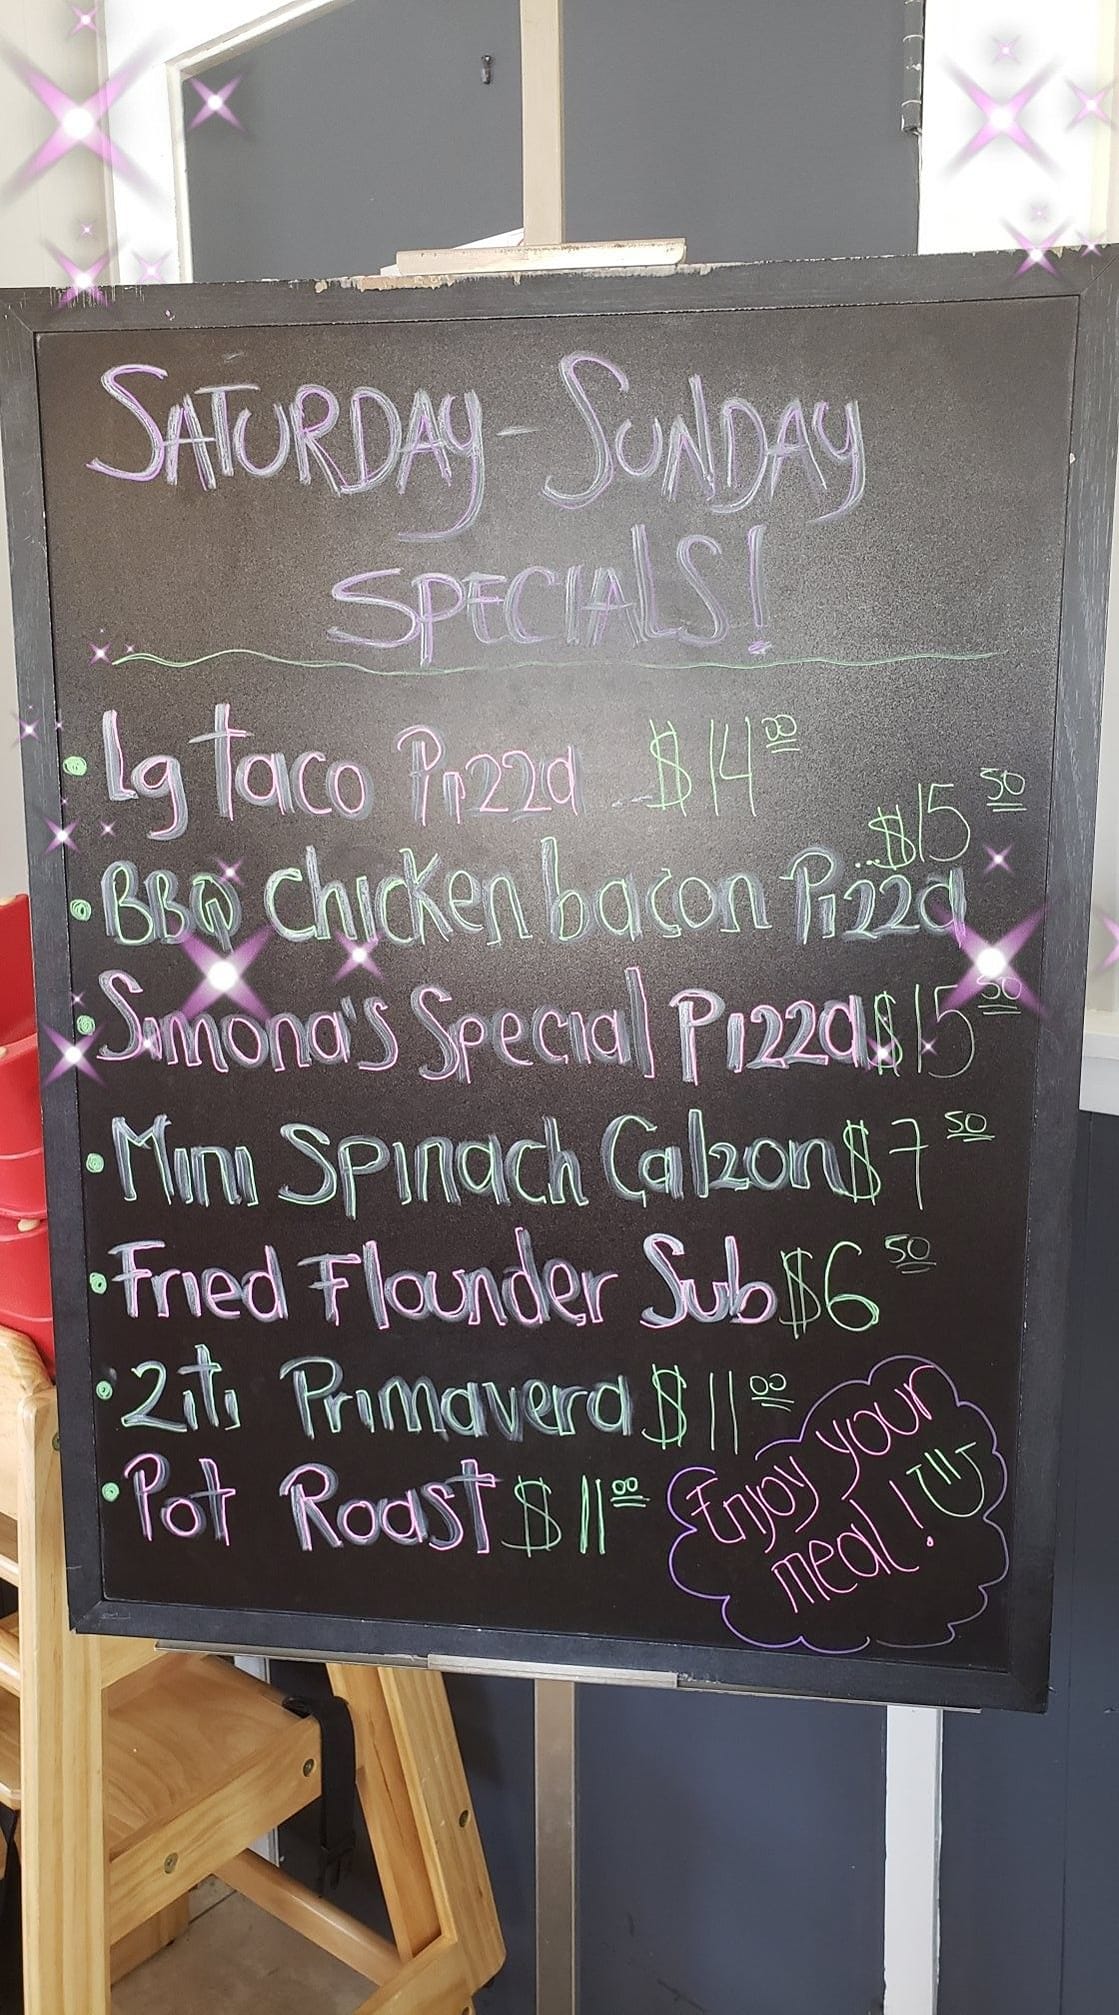 SATURDAY - SUNDAY
SPECIALS!
• Lg taco Pizza ... $14.00
...$15.50
• BBQ Chicken bacon Pizza
• Simona's Special Pizza $15.50
• Mini Spinach Calzon $7.50
• Fried Flounder Sub $6.50
• Ziti Primavera $11.00
• Pot Roast $11.00
Enjoy your
meal!